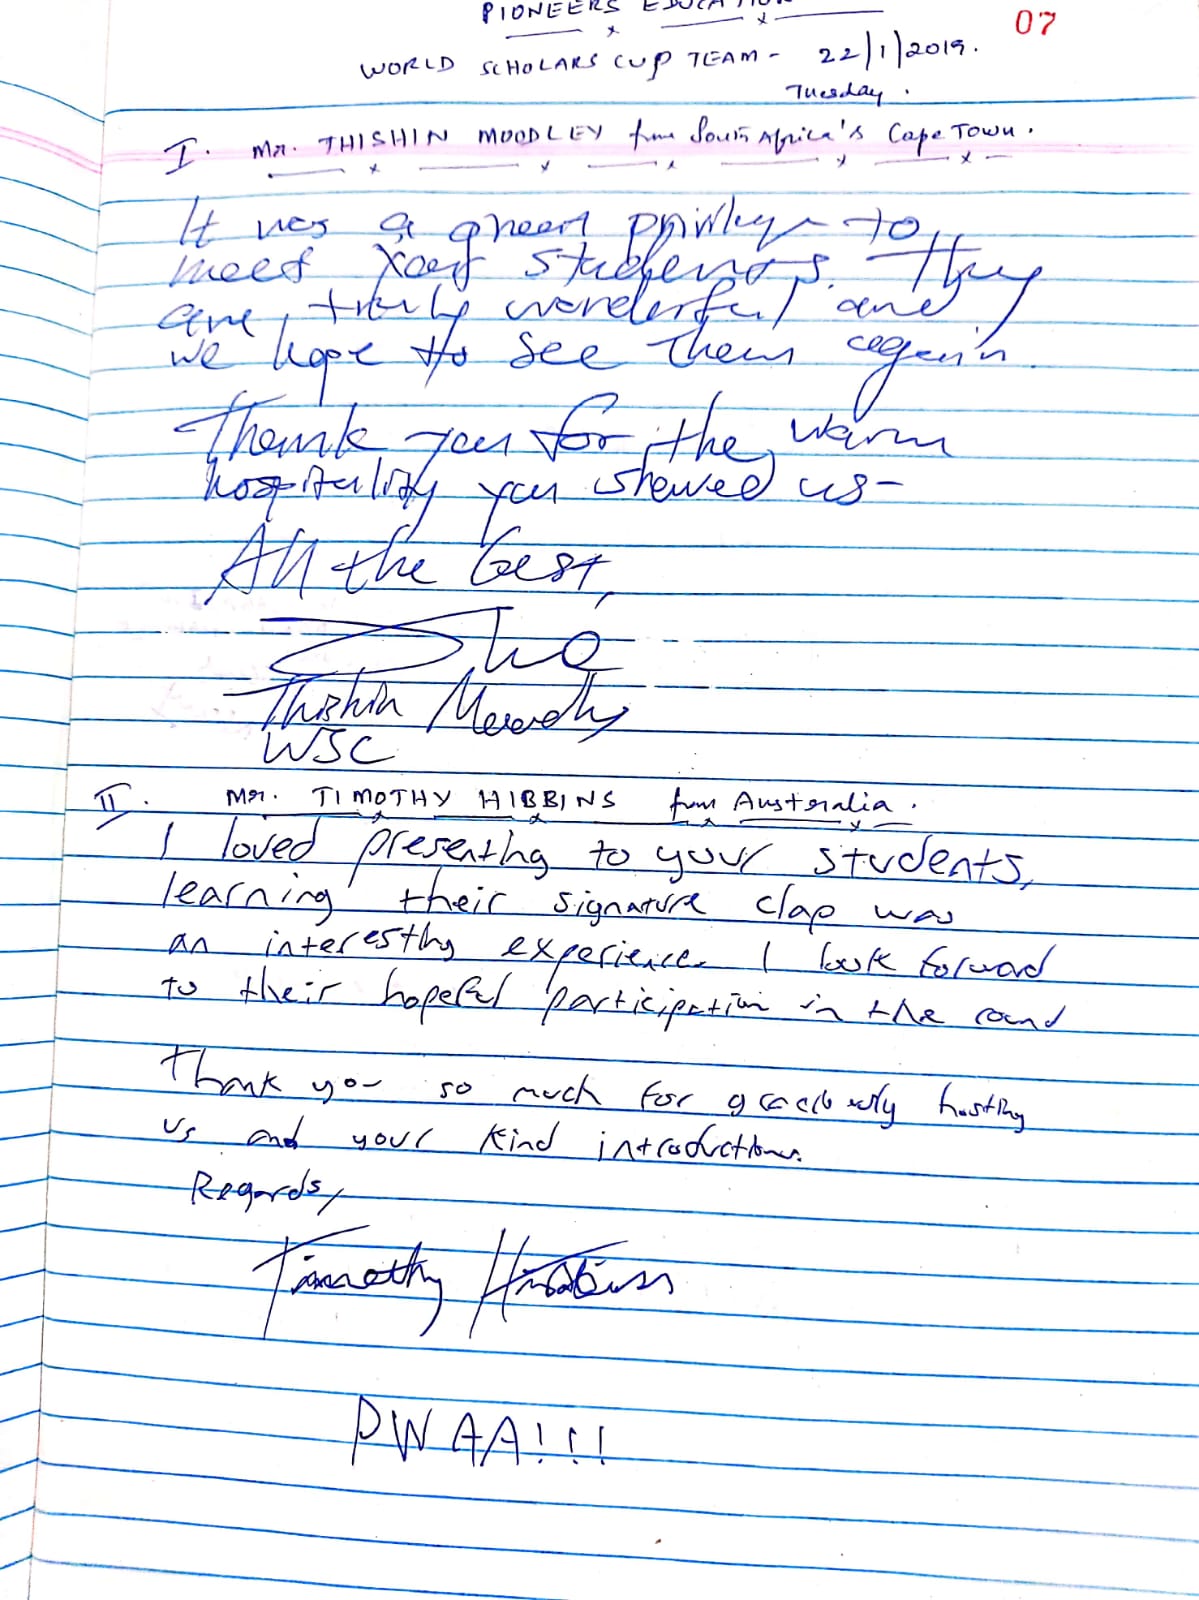 PIONEERS EDUCATION
07
WORLD SCHOLARS CUP TEAM - 22/1/2019.
Tuesday.
I. Mr. THISHIN MOODLEY from South Africa's Cape Town.
It was a great privilege to
meet your students. They
are truly wonderful and
we hope to see them again.
Thank you for the warm
hospitality you showed us-
All the best,
Thishin Moodley
WSC
II. Mr. TIMOTHY HIBBINS from Australia.
I loved presenting to your students,
learning their signature clap was
an interesting experience. I look forward
to their hopeful participation in the round
Thank you so much for graciously hosting
us and your kind introductions.
Regards,
Timothy Hibbins
PWAA!!!